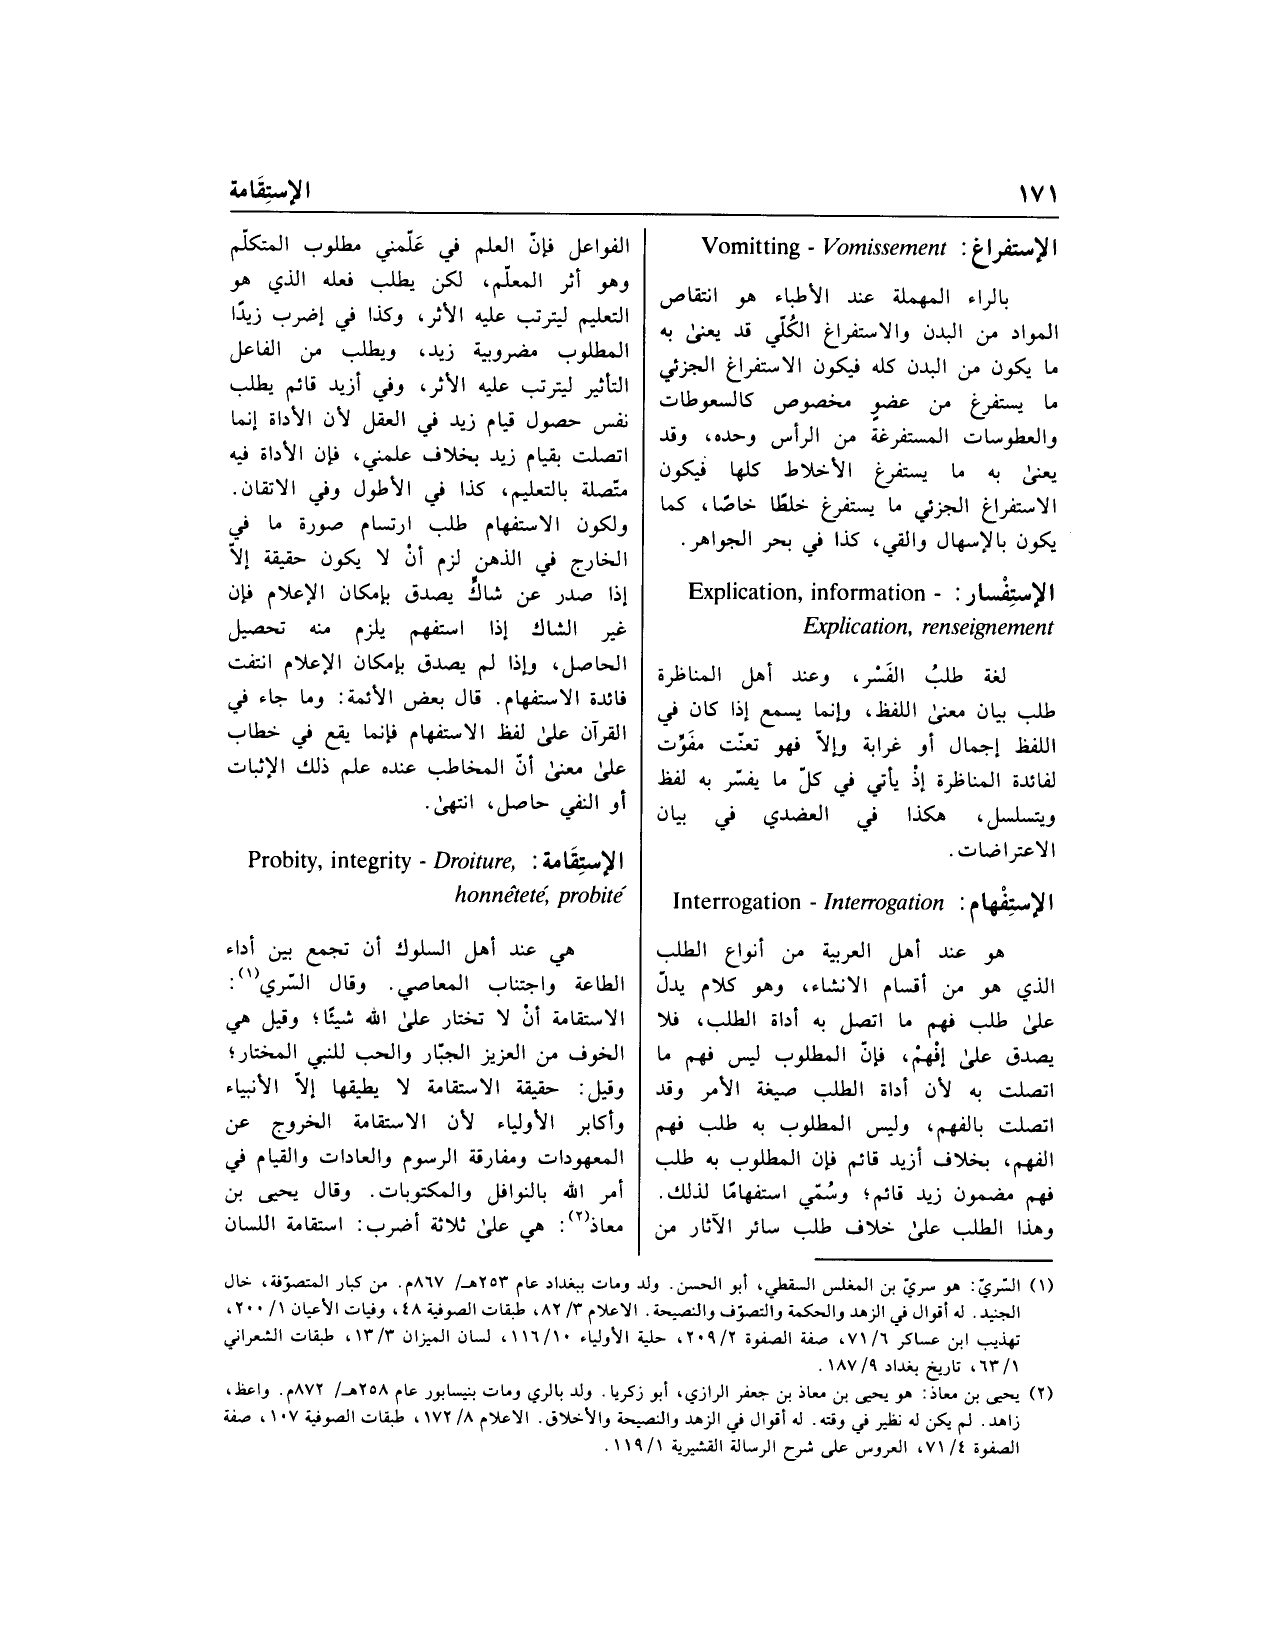 ١٧١
الإستِقَامة
الإستفراغ : Vomitting - Vomissement
بالراء المهملة عند الأطباء هو انتقاص
المواد من البدن والاستفراغ الكُلّي قد يعنىٰ به
ما يكون من البدن كله فيكون الاستفراغ الجزئي
ما يستفرغ من عضوٍ مخصوص كالسعوطات
والعطوسات المستفرغة من الرأس وحده، وقد
يعنىٰ به ما يستفرغ الأخلاط كلها فيكون
الاستفراغ الجزئي ما يستفرغ خلطًا خاصًا، كما
يكون بالإسهال والقي، كذا في بحر الجواهر.
الإستِفْسار : Explication, information -
Explication, renseignement
لغة طلبُ الفَسْر، وعند أهل المناظرة
طلب بيان معنىٰ اللفظ، وإنما يسمع إذا كان في
اللفظ إجمال أو غرابة وإلاّ فهو تعنّت مفَوِّت
لفائدة المناظرة إذْ يأتي في كلّ ما يفسّر به لفظ
ويتسلسل، هكذا في العضدي في بيان
الاعتراضات.
الإستِفْهام : Interrogation - Interrogation
هو عند أهل العربية من أنواع الطلب
الذي هو من أقسام الانشاء، وهو كلام يدلّ
علىٰ طلب فهم ما اتصل به أداة الطلب، فلا
يصدق علىٰ إفْهمْ، فإنّ المطلوب ليس فهم ما
اتصلت به لأن أداة الطلب صيغة الأمر وقد
اتصلت بالفهم، وليس المطلوب به طلب فهم
الفهم، بخلاف أزيد قائم فإن المطلوب به طلب
فهم مضمون زيد قائم؛ وسُمّي استفهامًا لذلك.
وهذا الطلب علىٰ خلاف طلب سائر الآثار من
الفواعل فإنّ العلم في عَلّمني مطلوب المتكلّم
وهو أثر المعلّم، لكن يطلب فعله الذي هو
التعليم ليترتب عليه الأثر، وكذا في إضرب زيدًا
المطلوب مضروبية زيد، ويطلب من الفاعل
التأثير ليترتب عليه الأثر، وفي أزيد قائم يطلب
نفس حصول قيام زيد في العقل لأن الأداة إنما
اتصلت بقيام زيد بخلاف علمني، فإن الأداة فيه
متّصلة بالتعليم، كذا في الأطول وفي الاتقان.
ولكون الاستفهام طلب ارتسام صورة ما في
الخارج في الذهن لزم أنْ لا يكون حقيقة إلاّ
إذا صدر عن شاكٍّ يصدق بإمكان الإعلام فإن
غير الشاك إذا استفهم يلزم منه تحصيل
الحاصل، وإذا لم يصدق بإمكان الإعلام انتفت
فائدة الاستفهام. قال بعض الأئمة: وما جاء في
القرآن علىٰ لفظ الاستفهام فإنما يقع في خطاب
علىٰ معنىٰ أنّ المخاطب عنده علم ذلك الإثبات
أو النفي حاصل، انتهىٰ.
الإستِقَامة : Probity, integrity - Droiture,
honnêteté, probité
هي عند أهل السلوك أن تجمع بين أداء
الطاعة واجتناب المعاصي. وقال السّري(١):
الاستقامة أنْ لا تختار علىٰ الله شيئًا؛ وقيل هي
الخوف من العزيز الجبّار والحب للنبي المختار؛
وقيل: حقيقة الاستقامة لا يطيقها إلاّ الأنبياء
وأكابر الأولياء لأن الاستقامة الخروج عن
المعهودات ومفارقة الرسوم والعادات والقيام في
أمر الله بالنوافل والمكتوبات. وقال يحيى بن
معاذ(٢): هي علىٰ ثلاثة أضرب: استقامة اللسان
(١) السّريّ: هو سريّ بن المغلس السقطي، أبو الحسن. ولد ومات ببغداد عام ٢٥٣هـ/ ٨٦٧م. من كبار المتصوّفة، خال
الجنيد. له أقوال في الزهد والحكمة والتصوّف والنصيحة. الاعلام ٣/ ٨٢، طبقات الصوفية ٤٨، وفيات الأعيان ١/ ٢٠٠،
تهذيب ابن عساكر ٦/ ٧١، صفة الصفوة ٢/ ٢٠٩، حلية الأولياء ١٠/ ١١٦، لسان الميزان ٣/ ١٣، طبقات الشعراني
١/ ٦٣، تاريخ بغداد ٩/ ١٨٧.
(٢) يحيى بن معاذ: هو يحيى بن معاذ بن جعفر الرازي، أبو زكريا. ولد بالري ومات بنيسابور عام ٢٥٨هـ/ ٨٧٢م. واعظ،
زاهد. لم يكن له نظير في وقته. له أقوال في الزهد والنصيحة والأخلاق. الاعلام ٨/ ١٧٢، طبقات الصوفية ١٠٧، صفة
الصفوة ٤/ ٧١، العروس على شرح الرسالة القشيرية ١/ ١١٩.